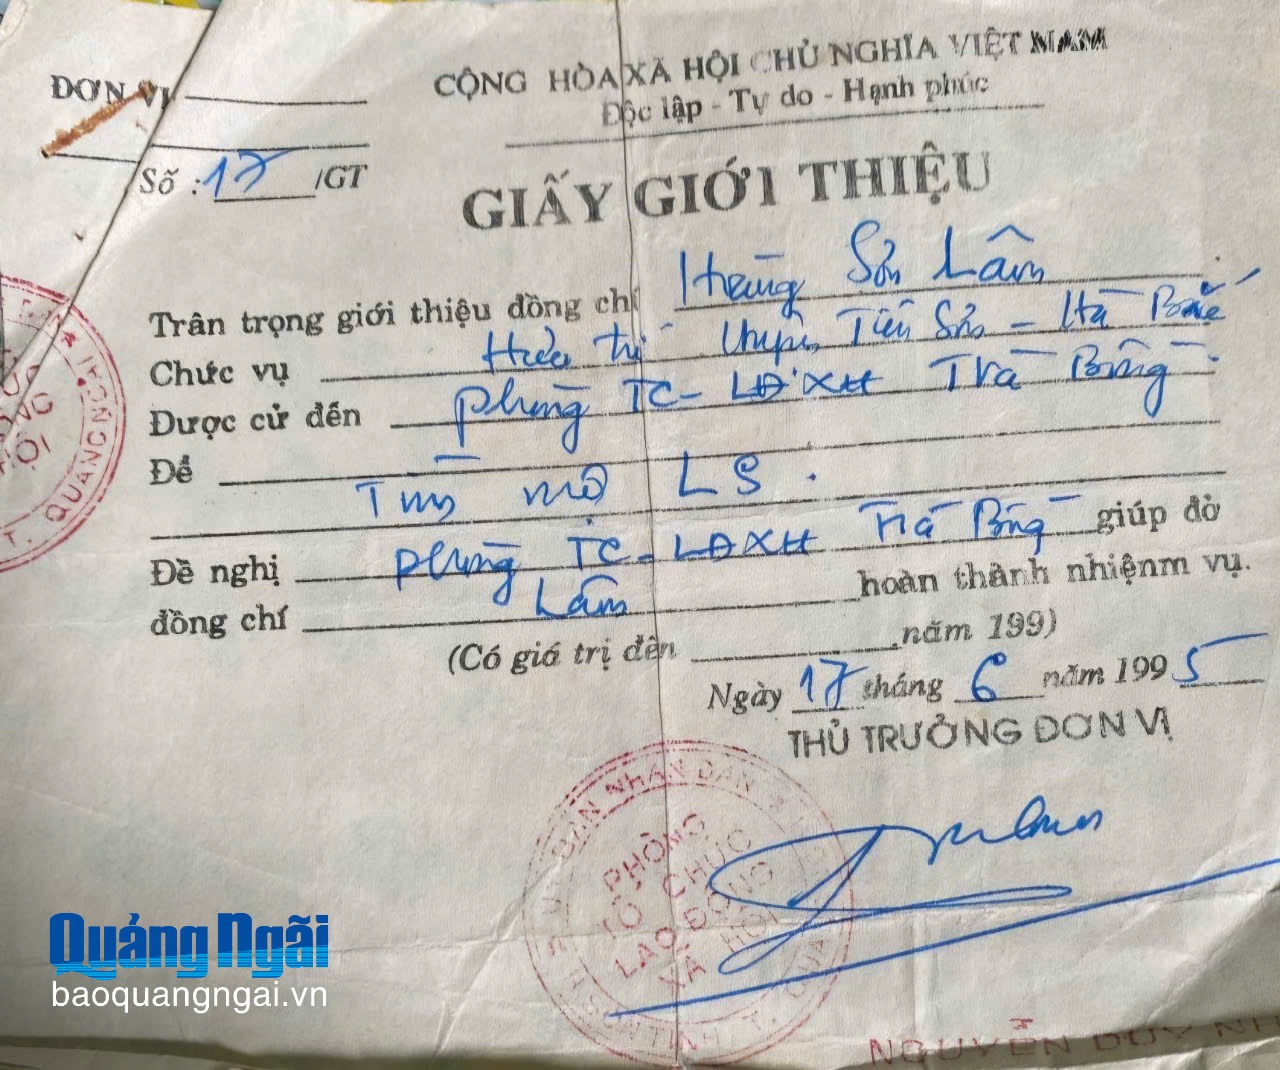 ĐƠN VỊ
CỘNG HÒA XÃ HỘI CHỦ NGHĨA VIỆT NAM
Độc lập - Tự do - Hạnh phúc
Số : 17 /GT
GIẤY GIỚI THIỆU
Trân trọng giới thiệu đồng chí Hoàng Sơn Lâm
Chức vụ Tiên Sơn - Hà Bắc
Được cử đến phòng TC - LĐXH Trà Bồng
Để
Tìm mộ LS.
Đề nghị phòng TC - LĐXH Trà Bồng giúp đở
đồng chí Lâm hoàn thành nhiệnm vụ.
(Có giá trị đến năm 199)
Ngày 17 tháng 6 năm 1995
THỦ TRƯỞNG ĐƠN VỊ
NHÂN DÂN
PHÒNG
TỔ CHỨC
LAO ĐỘNG
XÃ HỘI
T. QUẢNG NGÃI
NGUYỄN DUY NH
Quảng Ngãi
baoquangngai.vn